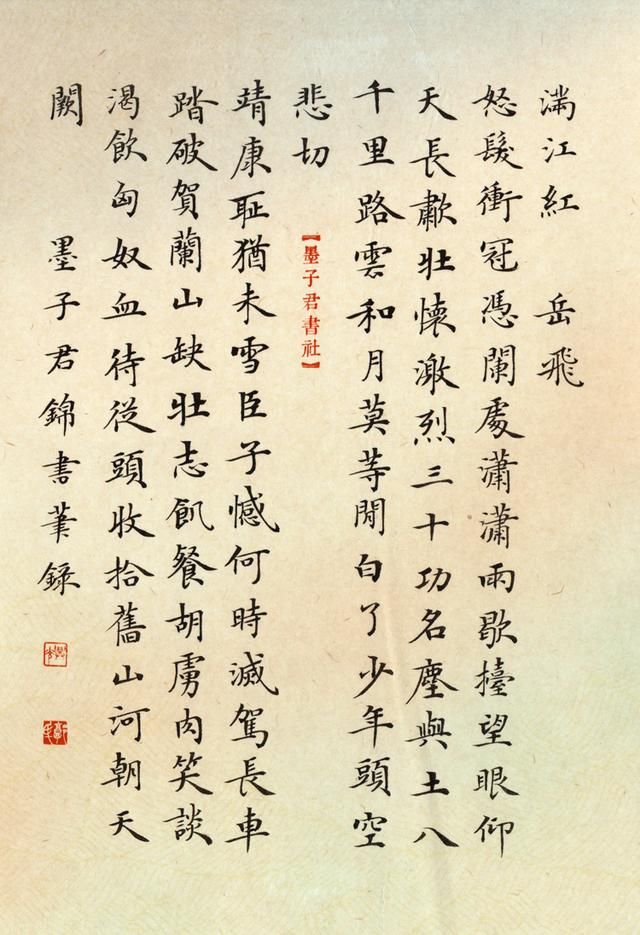 滿江紅 岳飛
怒髮衝冠憑闌處瀟瀟雨歇擡望眼仰
天長歗壯懷激烈三十功名塵與土八
千里路雲和月莫等閒白了少年頭空
悲切
【墨子君書社】
靖康耻猶未雪臣子憾何時滅駕長車
踏破賀蘭山缺壯志飢餐胡虜肉笑談
渴飲匈奴血待從頭收拾舊山河朝天
闕 墨子君錦書筆錄